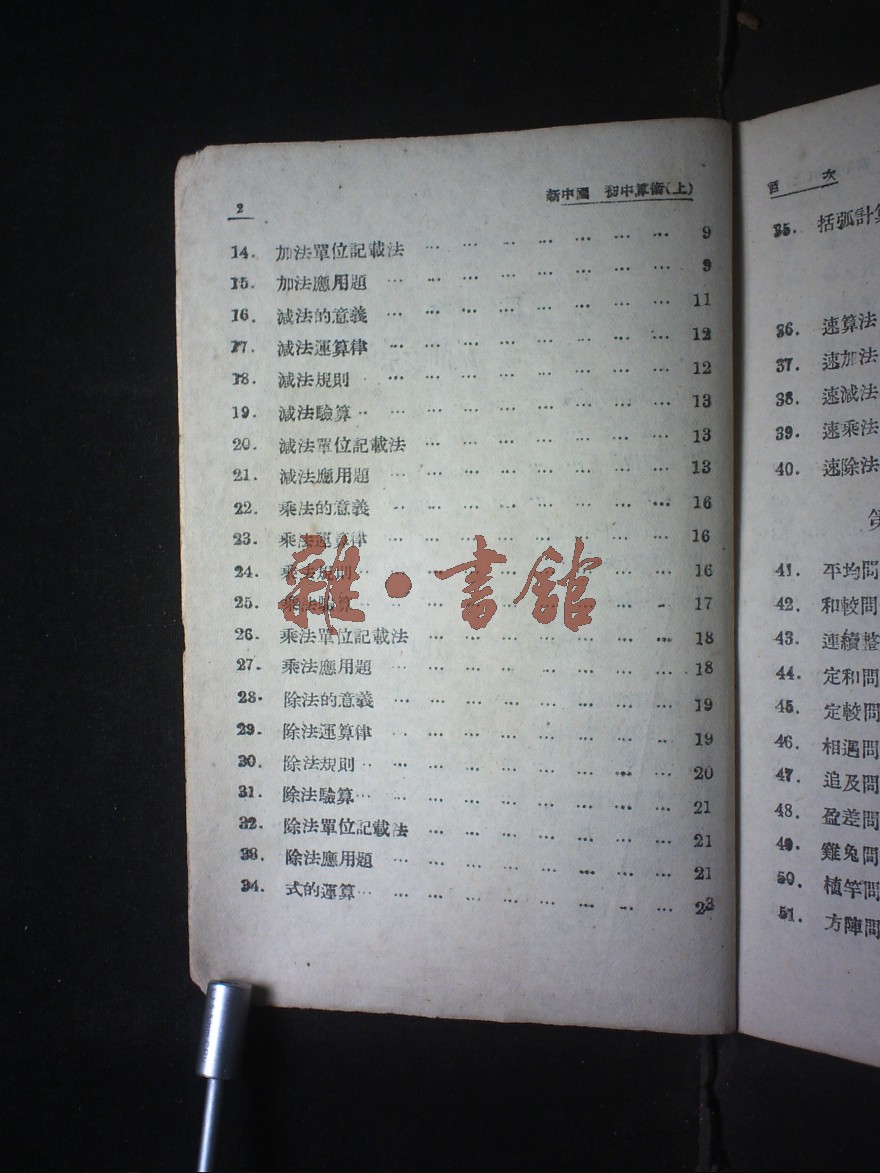 2
新中國 初中算術(上)
14. 加法單位記載法 … … … … … … … 9
15. 加法應用題 … … … … … … … … 9
16. 減法的意義 … … … … … … … … 11
17. 減法運算律 … … … … … … … … 12
18. 減法規則 … … … … … … … … 12
19. 減法驗算 … … … … … … … … 13
20. 減法單位記載法 … … … … … … … 13
21. 減法應用題 … … … … … … … … 13
22. 乘法的意義 … … … … … … … … 16
23. 乘法運算律 … … … … … … … … 16
24. 乘法規則 … … … … … … … … 16
25. 乘法驗算 … … … … … … … … 17
26. 乘法單位記載法 … … … … … … … 18
27. 乘法應用題 … … … … … … … … 18
28. 除法的意義 … … … … … … … … 19
29. 除法運算律 … … … … … … … … 19
30. 除法規則 … … … … … … … … 20
31. 除法驗算 … … … … … … … … 21
32. 除法單位記載法 … … … … … … … 21
33. 除法應用題 … … … … … … … … 21
34. 式的運算 … … … … … … … … 23
雜·書館
目 次
35. 括弧計算
36. 速算法
37. 速加法
38. 速減法
39. 速乘法
40. 速除法
41. 平均問
42. 和較問
43. 連續整
44. 定和問
45. 定較問
46. 相遇問
47. 追及問
48. 盈差問
49. 雞兔問
50. 植竿問
51. 方陣問